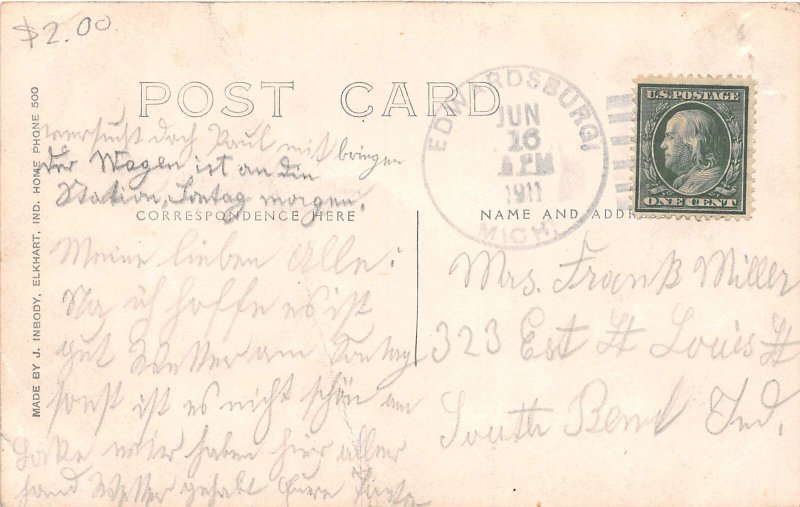 $2.00
POST CARD
versucht doch Paul mit bringen
der Wagen ist an den
Station, Sontag morgen.
CORRESPONDENCE HERE
Meine lieben Alle:
Na ich hoffe es ist
gut Wetter am Sontag
sonst ist es nicht schön am
Lake wier haben hier aller
hand Wetter gehabt Eure
MADE BY J. INBODY, ELKHART, IND. HOME PHONE 500
EDWARDSBURG
JUN
16
PM
1911
MICH.
U.S. POSTAGE
ONE CENT
NAME AND ADDR
Mrs. Frank Miller
323 Est St Louis St
South Bend Ind.